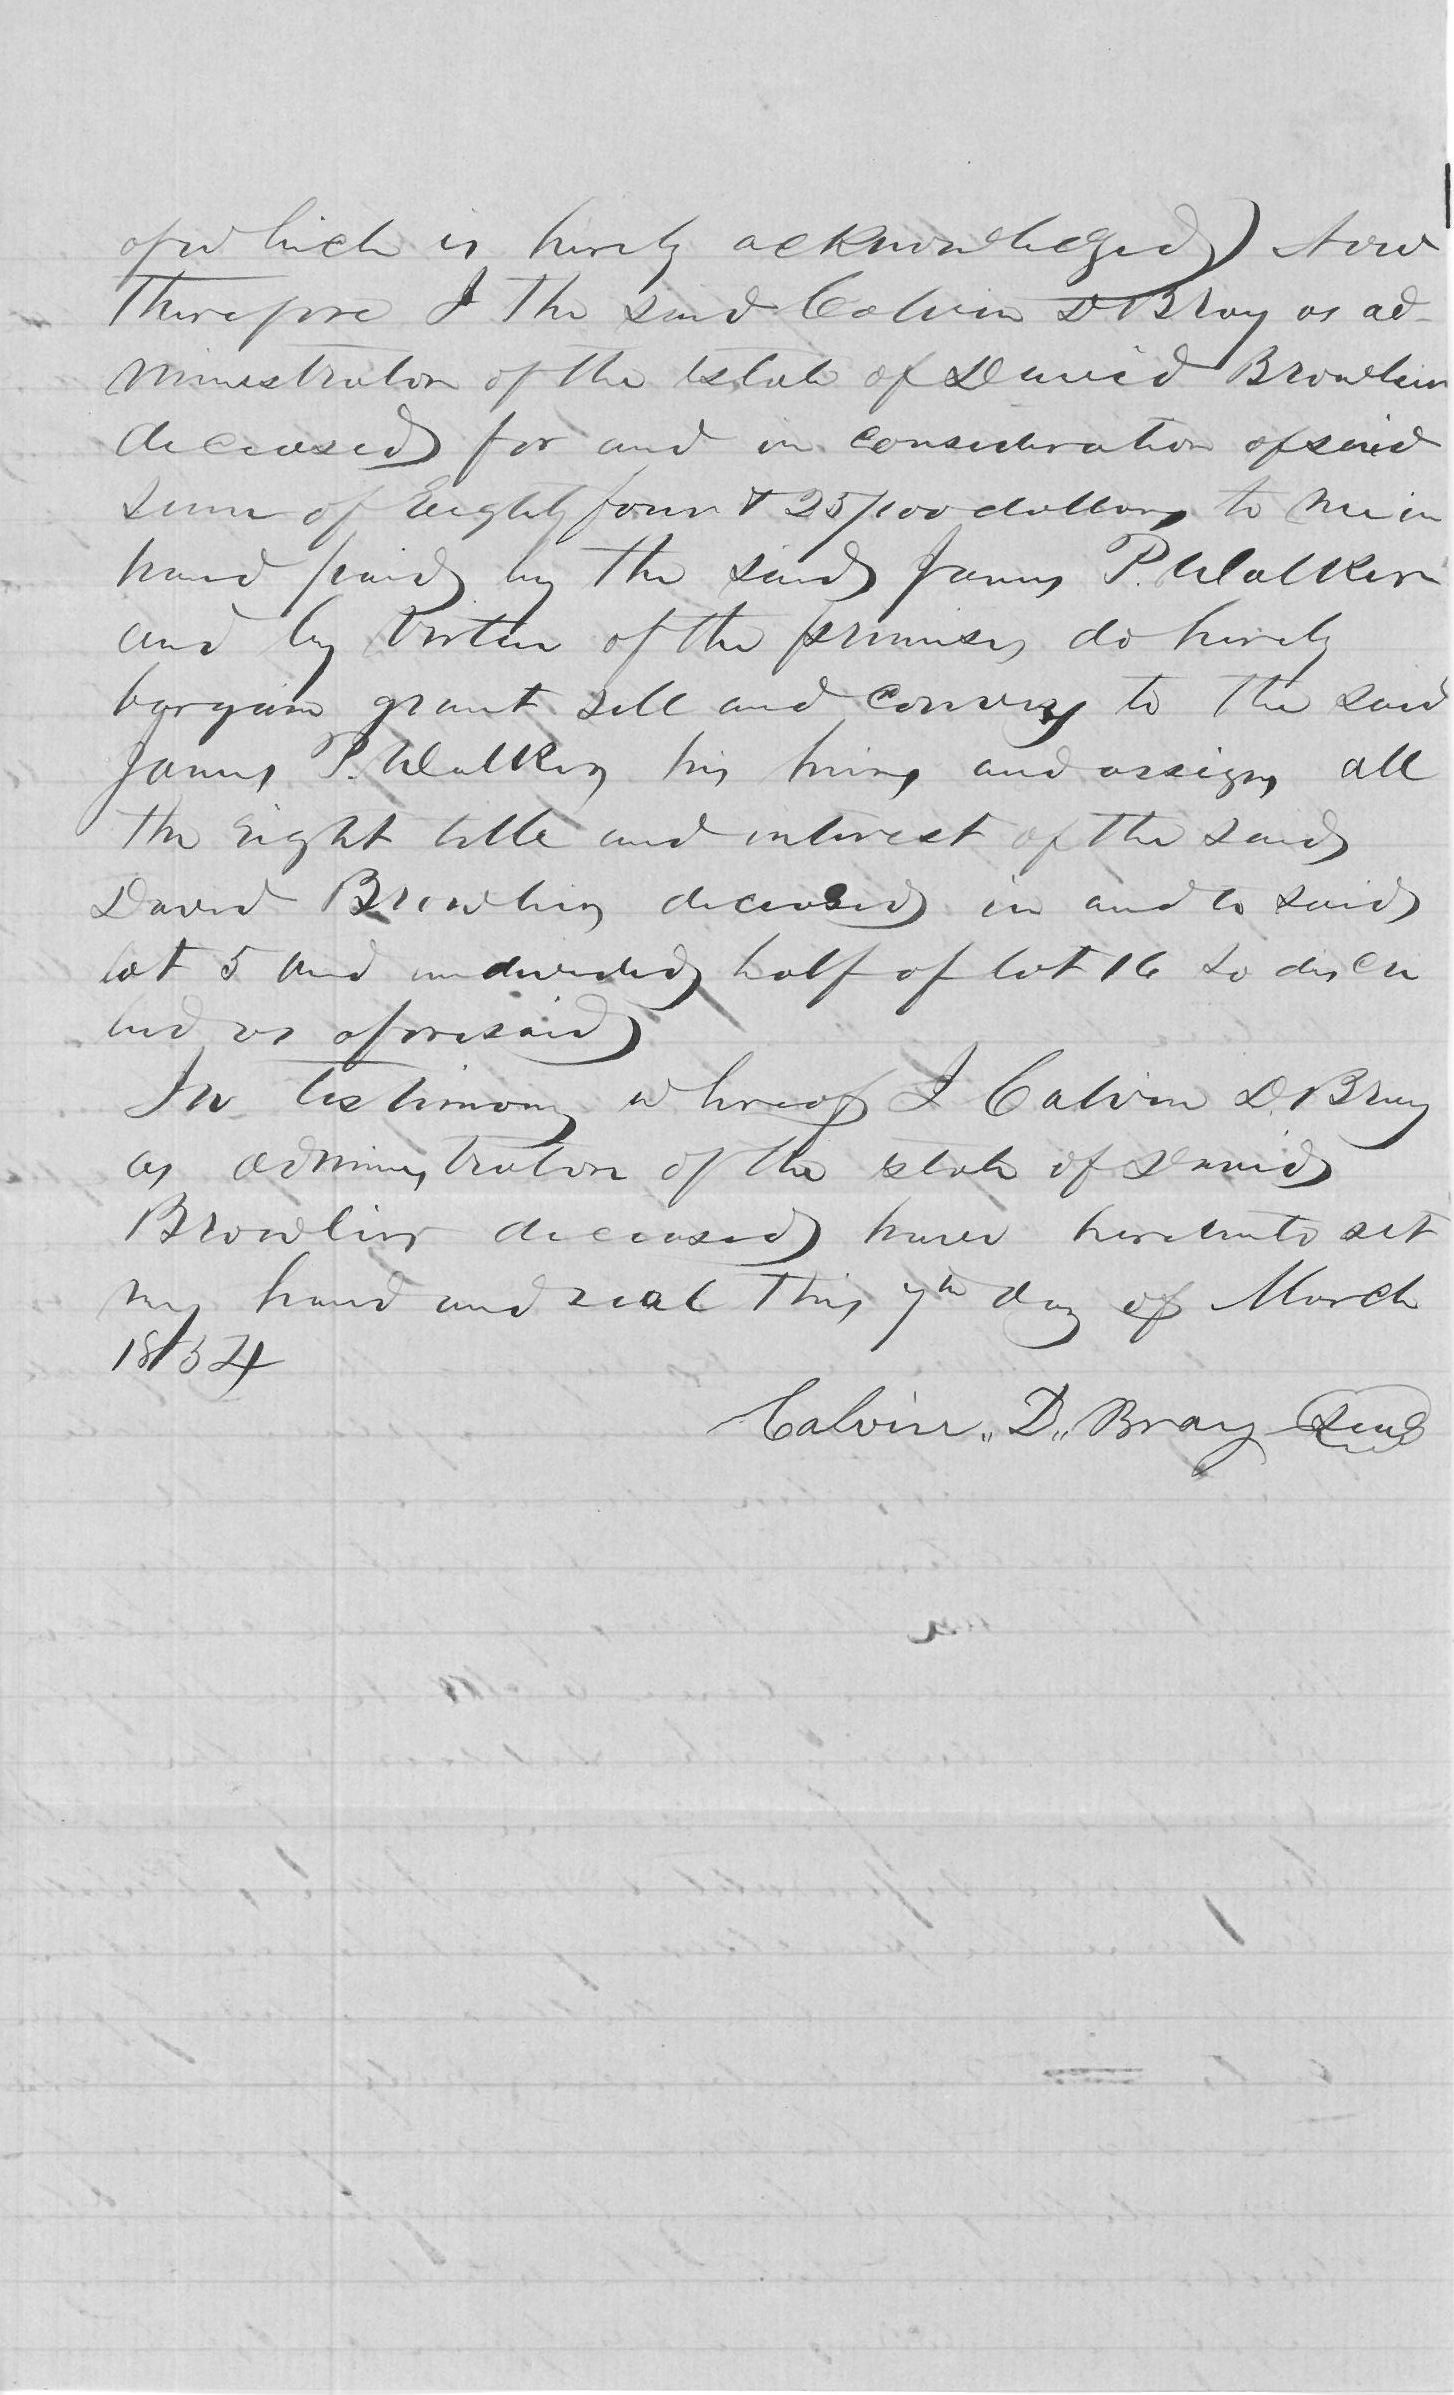 of which is hereby acknowledged) Now
Therefore I the said Calvin D Bray as ad-
ministrator of the Estate of David Browlin
deceased for and in consideration of said
sum of Eighty four & 25/100 dollars to me in
hand paid by the said James P. Walker
and by virtue of the premises do hereby
bargain grant sell and convey to the said
James P. Walker his heirs and assigns all
the right title and interest of the said
David Browlin deceased in and to said
lot 5 and undivided half of lot 16 so descri
bed as aforesaid
In testimony whereof I Calvin D. Bray
as administrator of the estate of David
Browlin deceased have hereunto set
my hand and seal this 7th day of March
1854
Calvin „ D „ Bray Seal